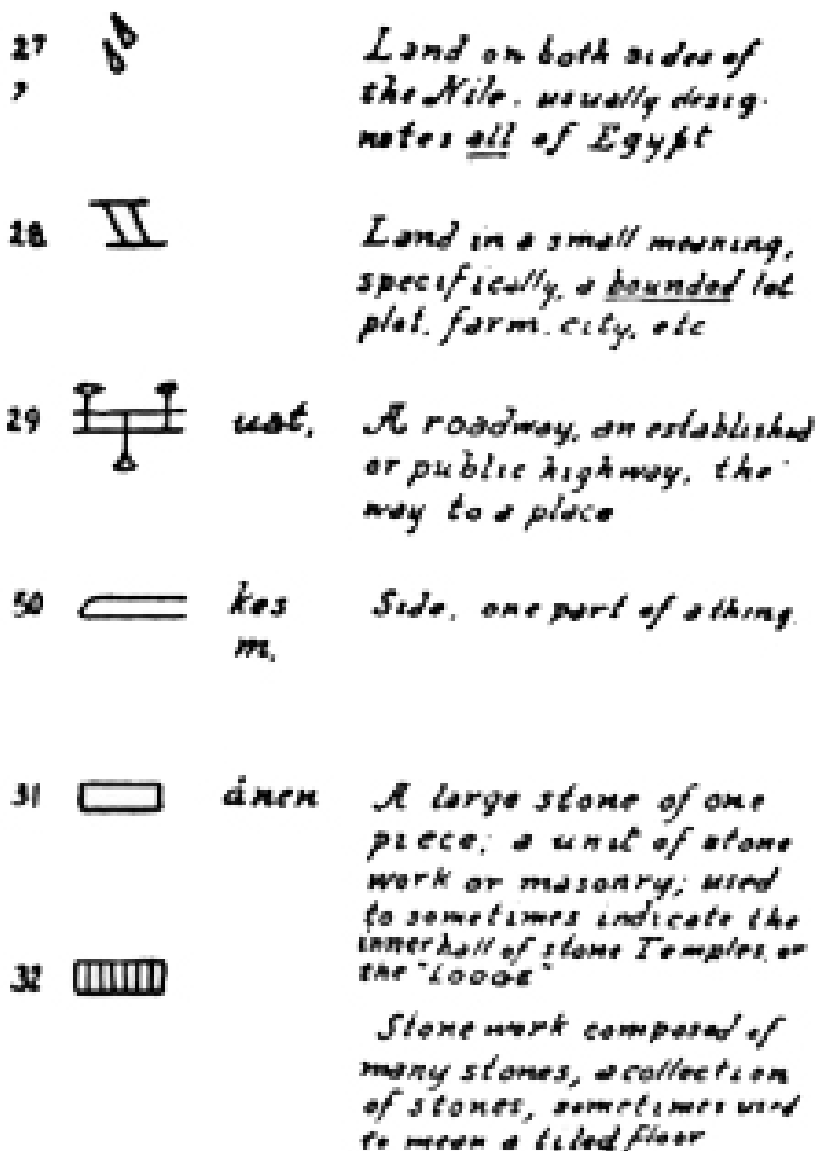 27 Land on both sides of
? the Nile. usually desig-
notes all of Egypt
28 Land in a small meaning,
specifically, a bounded lot
plot. farm. city, etc
29 uat. A roadway, an established
or public highway, the
way to a place
30 kes Side, one part of a thing.
m.
31 ánen A large stone of one
piece; a unit of stone
work or masonry; used
to sometimes indicate the
inner hall of stone Temples, or
the "LODGE"
32
Stone work composed of
many stones, a collection
of stones, sometimes used
to mean a tiled floor